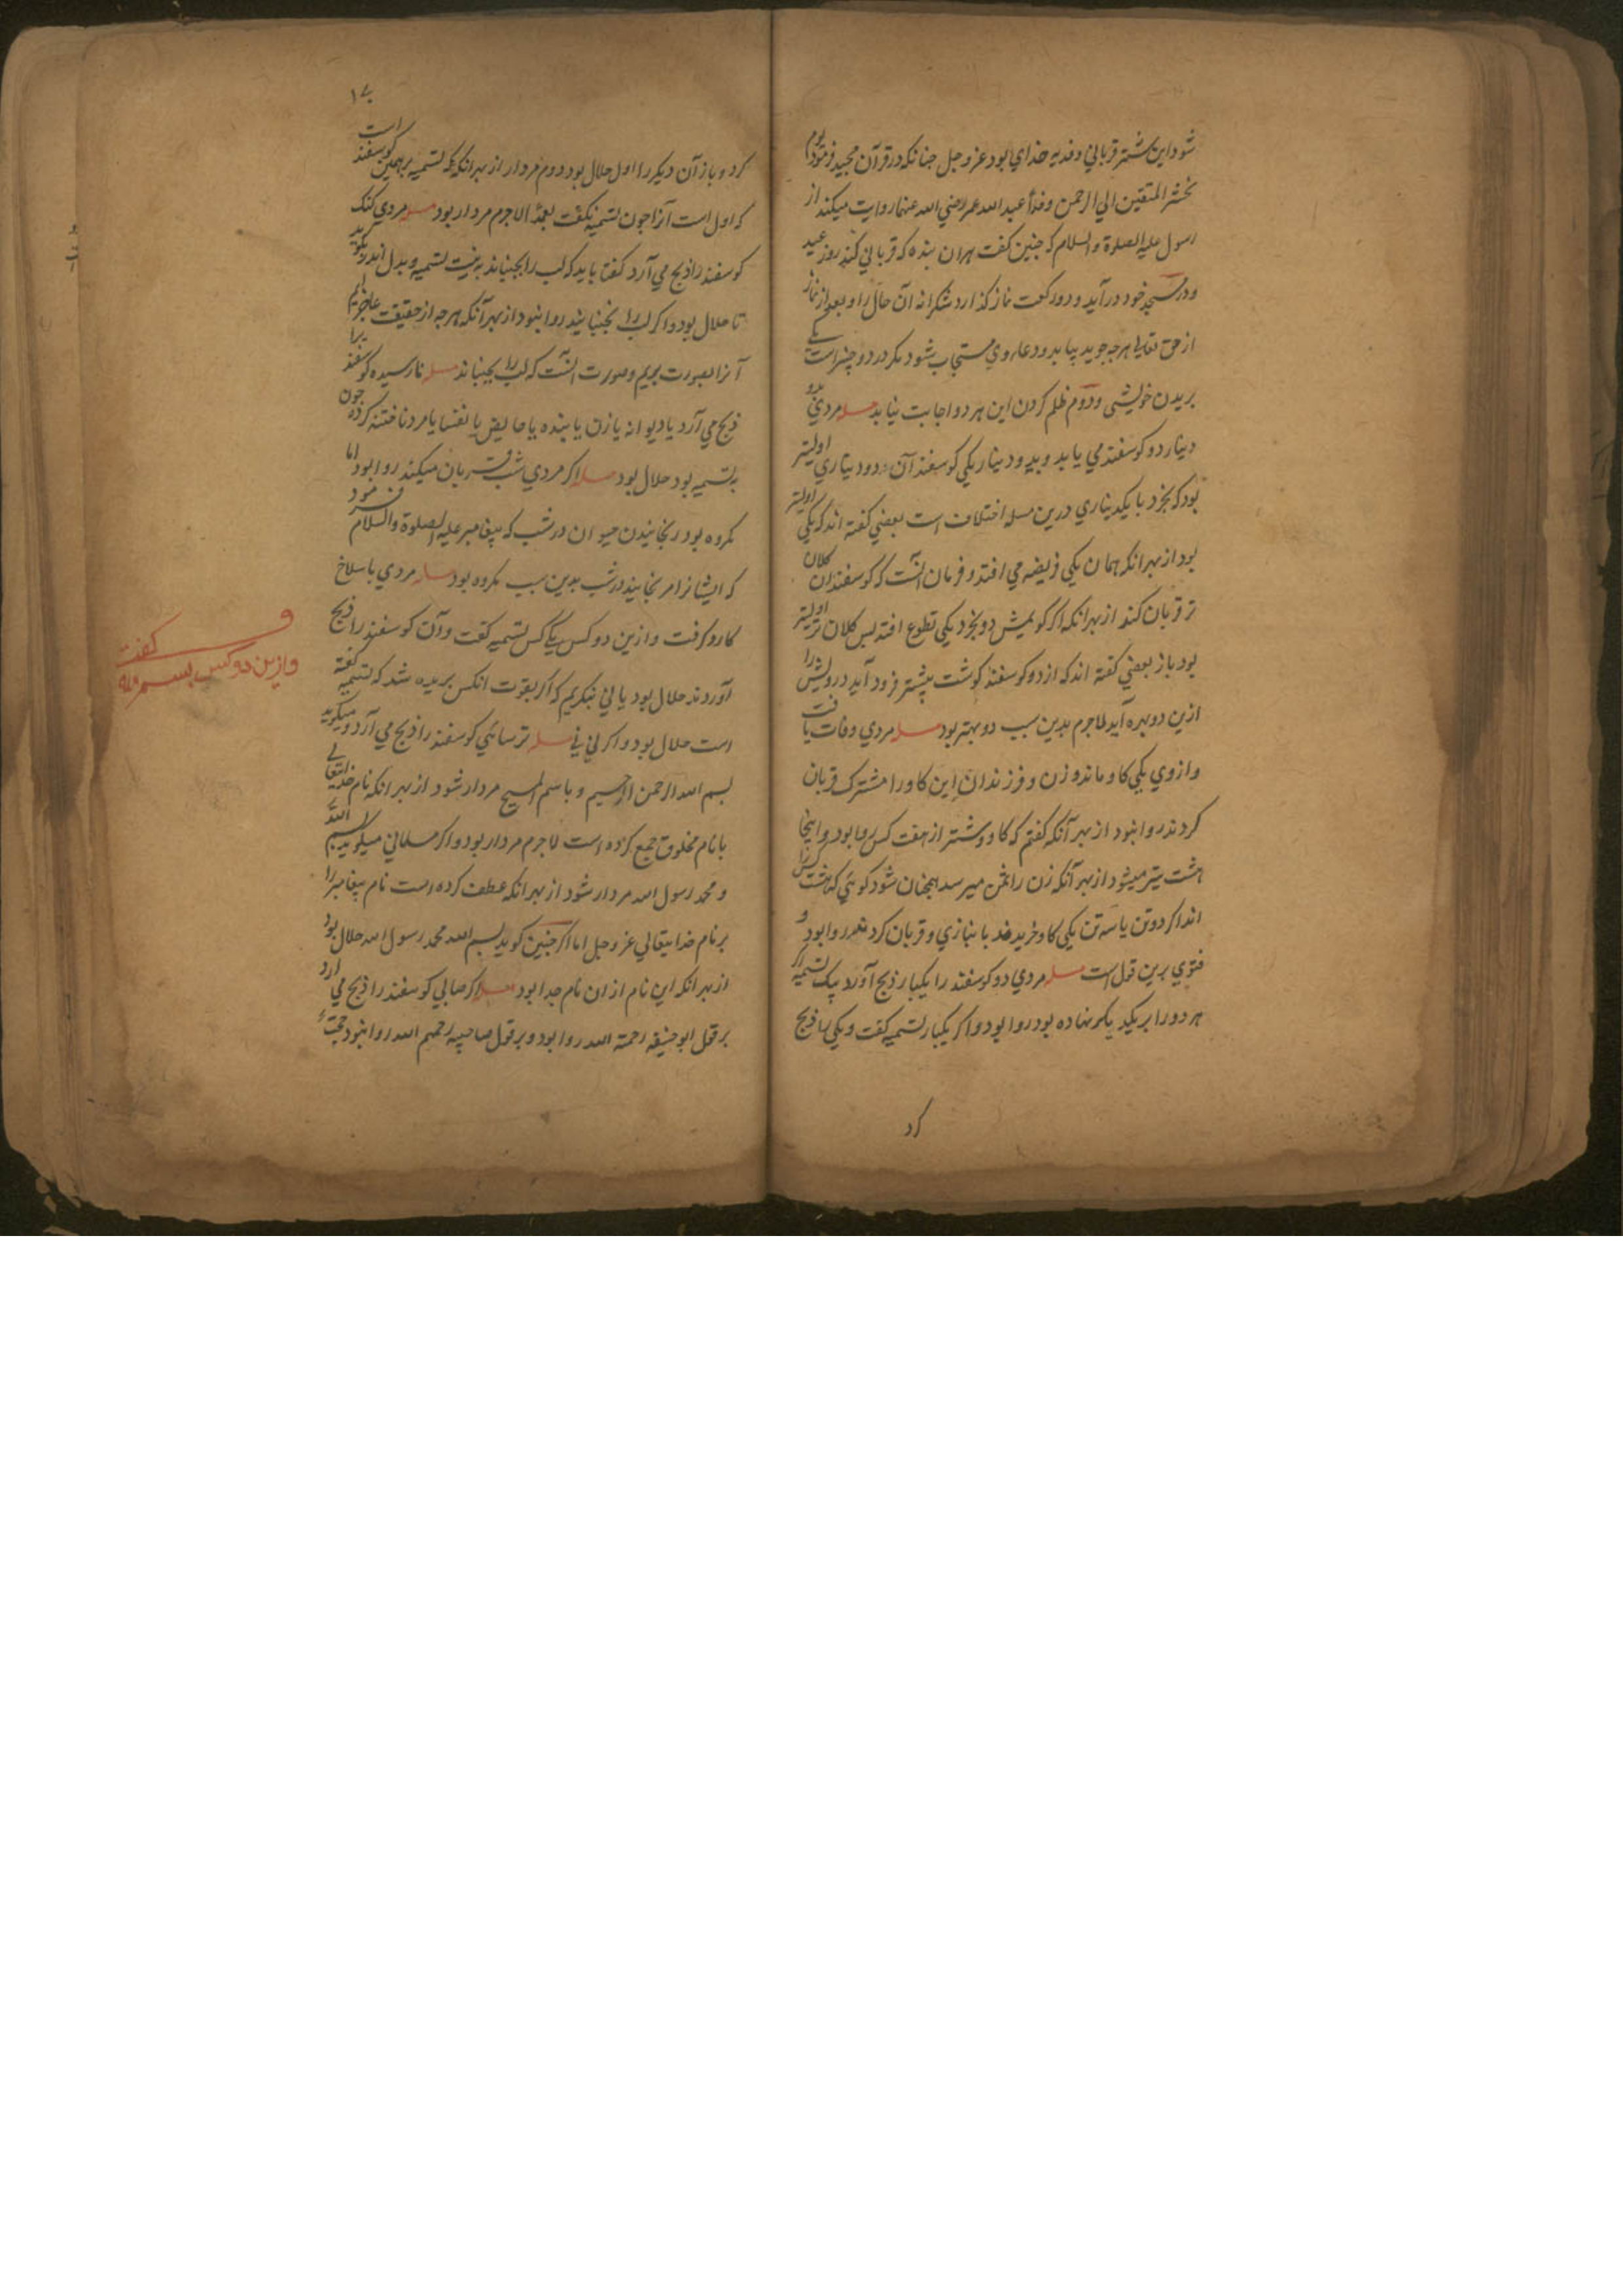 شود این شتر قربانی و فدیه خدای بود عز و جل جنانکه در قرآن مجید فرمود یوم
نحشر المتقین الی الرحمن وفدا عبد الله عمر رضی الله عنهما روایت میکند از
رسول علیه الصلوة والسلام که جنین کفت هران بنده که قربانی کند روز عید
و در مسجد خود در آید و دو رکعت نماز کذارد شکرانه آن حال را و بعد از نماز
از حق تعالی هرجه جوید بیابد و دعاء وی مستجاب شود مکر در دو جیز است یکی
بریدن خویشی و دوم ظلم کردن این هر دو اجابت نیابد مسله مردی بدو
دینار دو کوسفند می یابد و بدو دینار یکی کوسفند آن دو دیناری اولیتر
بود که بخرد یا یکدیناری درین مسله اختلاف است بعضی کفته اند که یکی اولیتر
بود از بهر انکه همان یکی فریضه می افتد و فرمان انست که کوسفندان کلان
تر قربان کند از بهر انکه اکر کومیش دو بخرد یکی تطوع افتد بس کلان تر اولیتر
بود باز بعضی کفته اند که از دو کوسفند کوشت بیشتر فرود آید درویش را
ازین دو بهره آید لاجرم بدین سبب دو بهتر بود مسله مردی وفات یافت
و از وی یکی کاو ماند و زن و فرزندان این کاو را مشترک قربان
کردند روا نبود از بهر آنکه کفتم که کاو و شتر از هفت کس روا بود و اینجا
هشت تیر میشود از بهر آنکه زن را ثمن میرسد همجنان شود کوئی که هشت کس را
اند اکر دو تن یا سه تن یکی کاو خریدند با نبازی و قربان کردند روا بود و
فتوی برین قول است مسله مردی دو کوسفند را یکبار ذبح آورد یک تسمیه اکر
هر دو را بر یکدیکر نهاده بود روا بود و اکر یکبار تسمیه کفت و یکی را ذبح
کرد
۱۷
کرد و باز آن دیکر را اول حلال بود دوم مردار از بهر انکه که تسمیه بر همین کوسفند است
که اول است آنرا جون تسمیه نکفت بعمدا لاجرم مردار بود مسله مردی کنک
کوسفند را ذبح می آرد کفتا باید که لب را بجنباند به نیت تسمیه و بدل اندر بکوید
تا حلال بود و اکر لب را نجنبانید روا نبود از بهر آنکه هرجه از حقیقت عاجز ایم
آنرا بصورت بریم و صورت انست که لب را بجنباند مسله نارسیده کوسفند را
ذبح می آرد یا دیوانه یا زن یا بنده یا حایض یا نفسا یا مرد ناختنه کرده جون
به تسمیه بود حلال بود مسله اکر مردی شب قربان میکند روا بود اما
مکروه بود رنجانیدن حیوان در شب که پیغامبر علیه الصلوة والسلام فرمود
که ایشانرا مرنجانید در شب بدین سبب مکروه بود مسله مردی با سلاخ
کارد کرفت و ازین دو کس یکی کس تسمیه کفت و آن کوسفند را ذبح
آوردند حلال بود یا نی بنکریم که اکر بقوت انکس بریده شد که تسمیه کفته
است حلال بود و اکر نی نی مسله ترسائی کوسفند را ذبح می آرد و میکوید
بسم الله الرحمن الرحیم و باسم المسیح مردار شود از بهر انکه نام خدایتعالی
با نام مخلوق جمع کرده است لاجرم مردار بود و اکر مسلمانی میکوید بسم الله
و محمد رسول الله مردار شود از بهر انکه عطف کرده است نام پیغامبر را
بر نام خدایتعالی عز و جل اما اکر جنین کوید بسم الله محمد رسول الله حلال بود
از بهر انکه این نام از ان نام جدا بود مسله اکر صابی کوسفند را ذبح می ارد
بر قول ابو حنیفه رحمة الله روا بود و بر قول صاحبیه رحمهم الله روا نبود حجت
و ازین دو کس بسم الله کفت